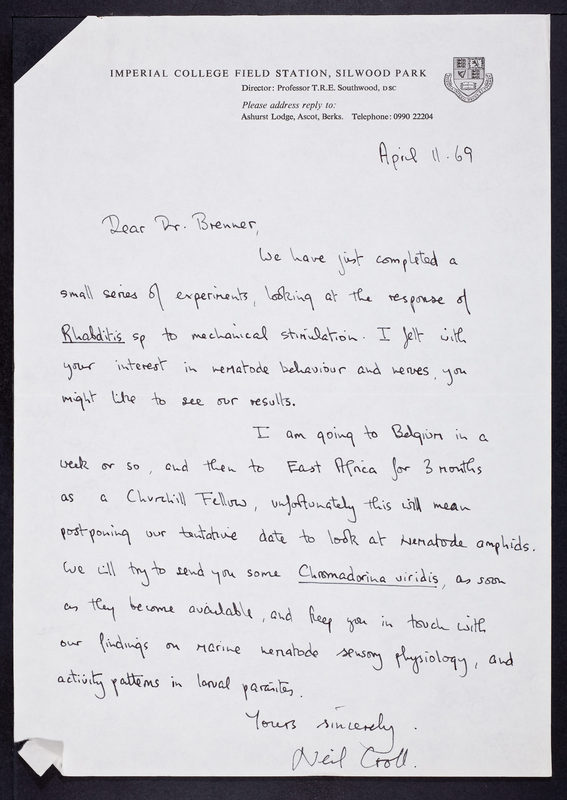 IMPERIAL COLLEGE FIELD STATION, SILWOOD PARK
Director: Professor T.R.E. Southwood, DSC
Please address reply to:
Ashurst Lodge, Ascot, Berks. Telephone: 0990 22204
April 11.69
Dear Dr. Brenner,
We have just completed a
small series of experiments, looking at the response of
Rhabditis sp to mechanical stimulation. I felt with
your interest in nematode behaviour and nerves, you
might like to see our results.
I am going to Belgium in a
week or so, and then to East Africa for 3 months
as a Churchill Fellow, unfortunately this will mean
postponing our tentative date to look at nematode amphids.
We will try to send you some Chromadorina viridis, as soon
as they become available, and keep you in touch with
our findings on marine nematode sensory physiology, and
activity patterns in larval parasites.
Yours sincerely.
Neil Croll.